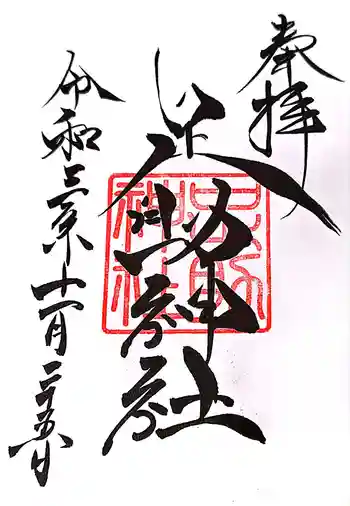 奉拝
足助神社
令和三年十一月二十五日
足助
神社